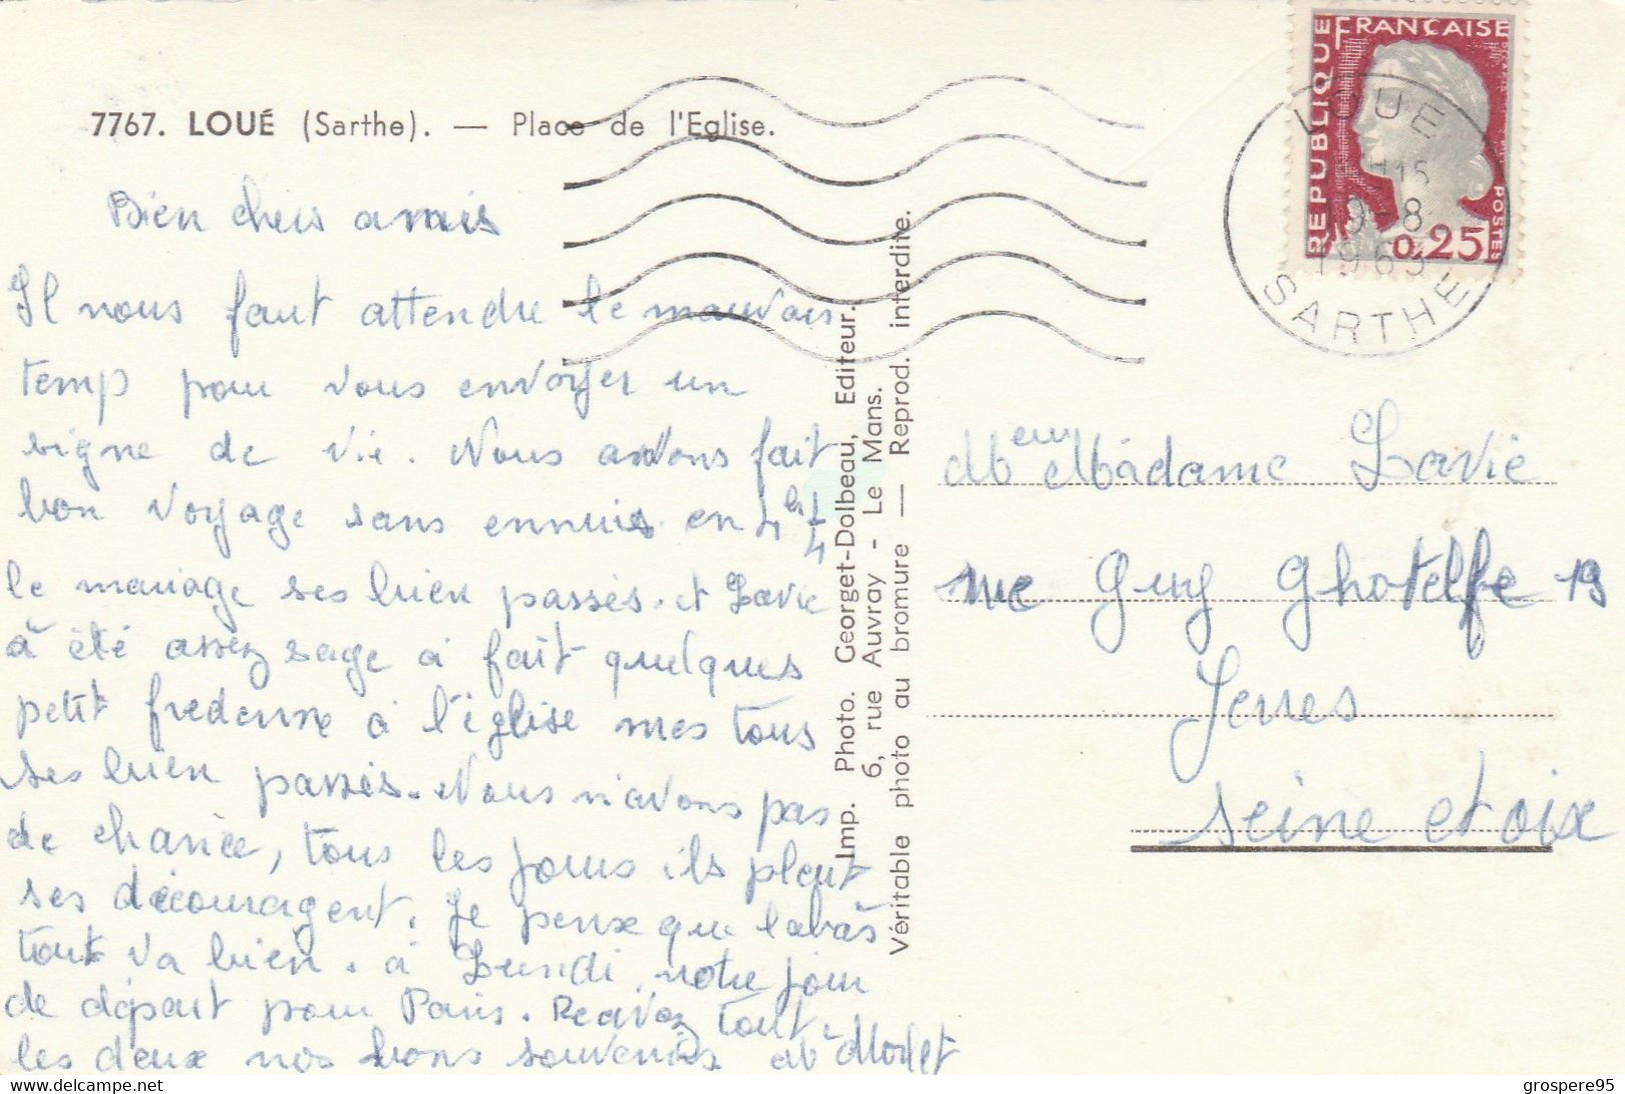 7767. LOUÉ (Sarthe). — Place de l'Eglise.
Bien chers amis
Il nous faut attendre le mauvais
temp pour vous envoyer un
signe de vie. Nous avons fait
bon voyage sans ennuis en 4 h 1/4
le mariage ses bien passés. et Lavie
à été assez sage a fait quelques
petit fredenne à l'église mes tous
ses bien passés. Nous n'avons pas
de chance, tous les jours ils pleut
ses découragent. Je pense que labàs
tout va bien. à Lundi notre jour
de départ pour Paris. Recevez tout
les deux nos bons souvenirs M Morlet
Imp. Photo. Georget-Dolbeau, Editeur.
6, rue Auvray - Le Mans.
Véritable photo au bromure — Reprod. interdite.
REPUBLIQUE FRANÇAISE
POSTES
0,25
LOUE
H15
19-8
1963
SARTHE
Meur Madame Lavie
rue Guy Ghotelfe 19
Yerres
Seine et oise
www.delcampe.net
grospere95